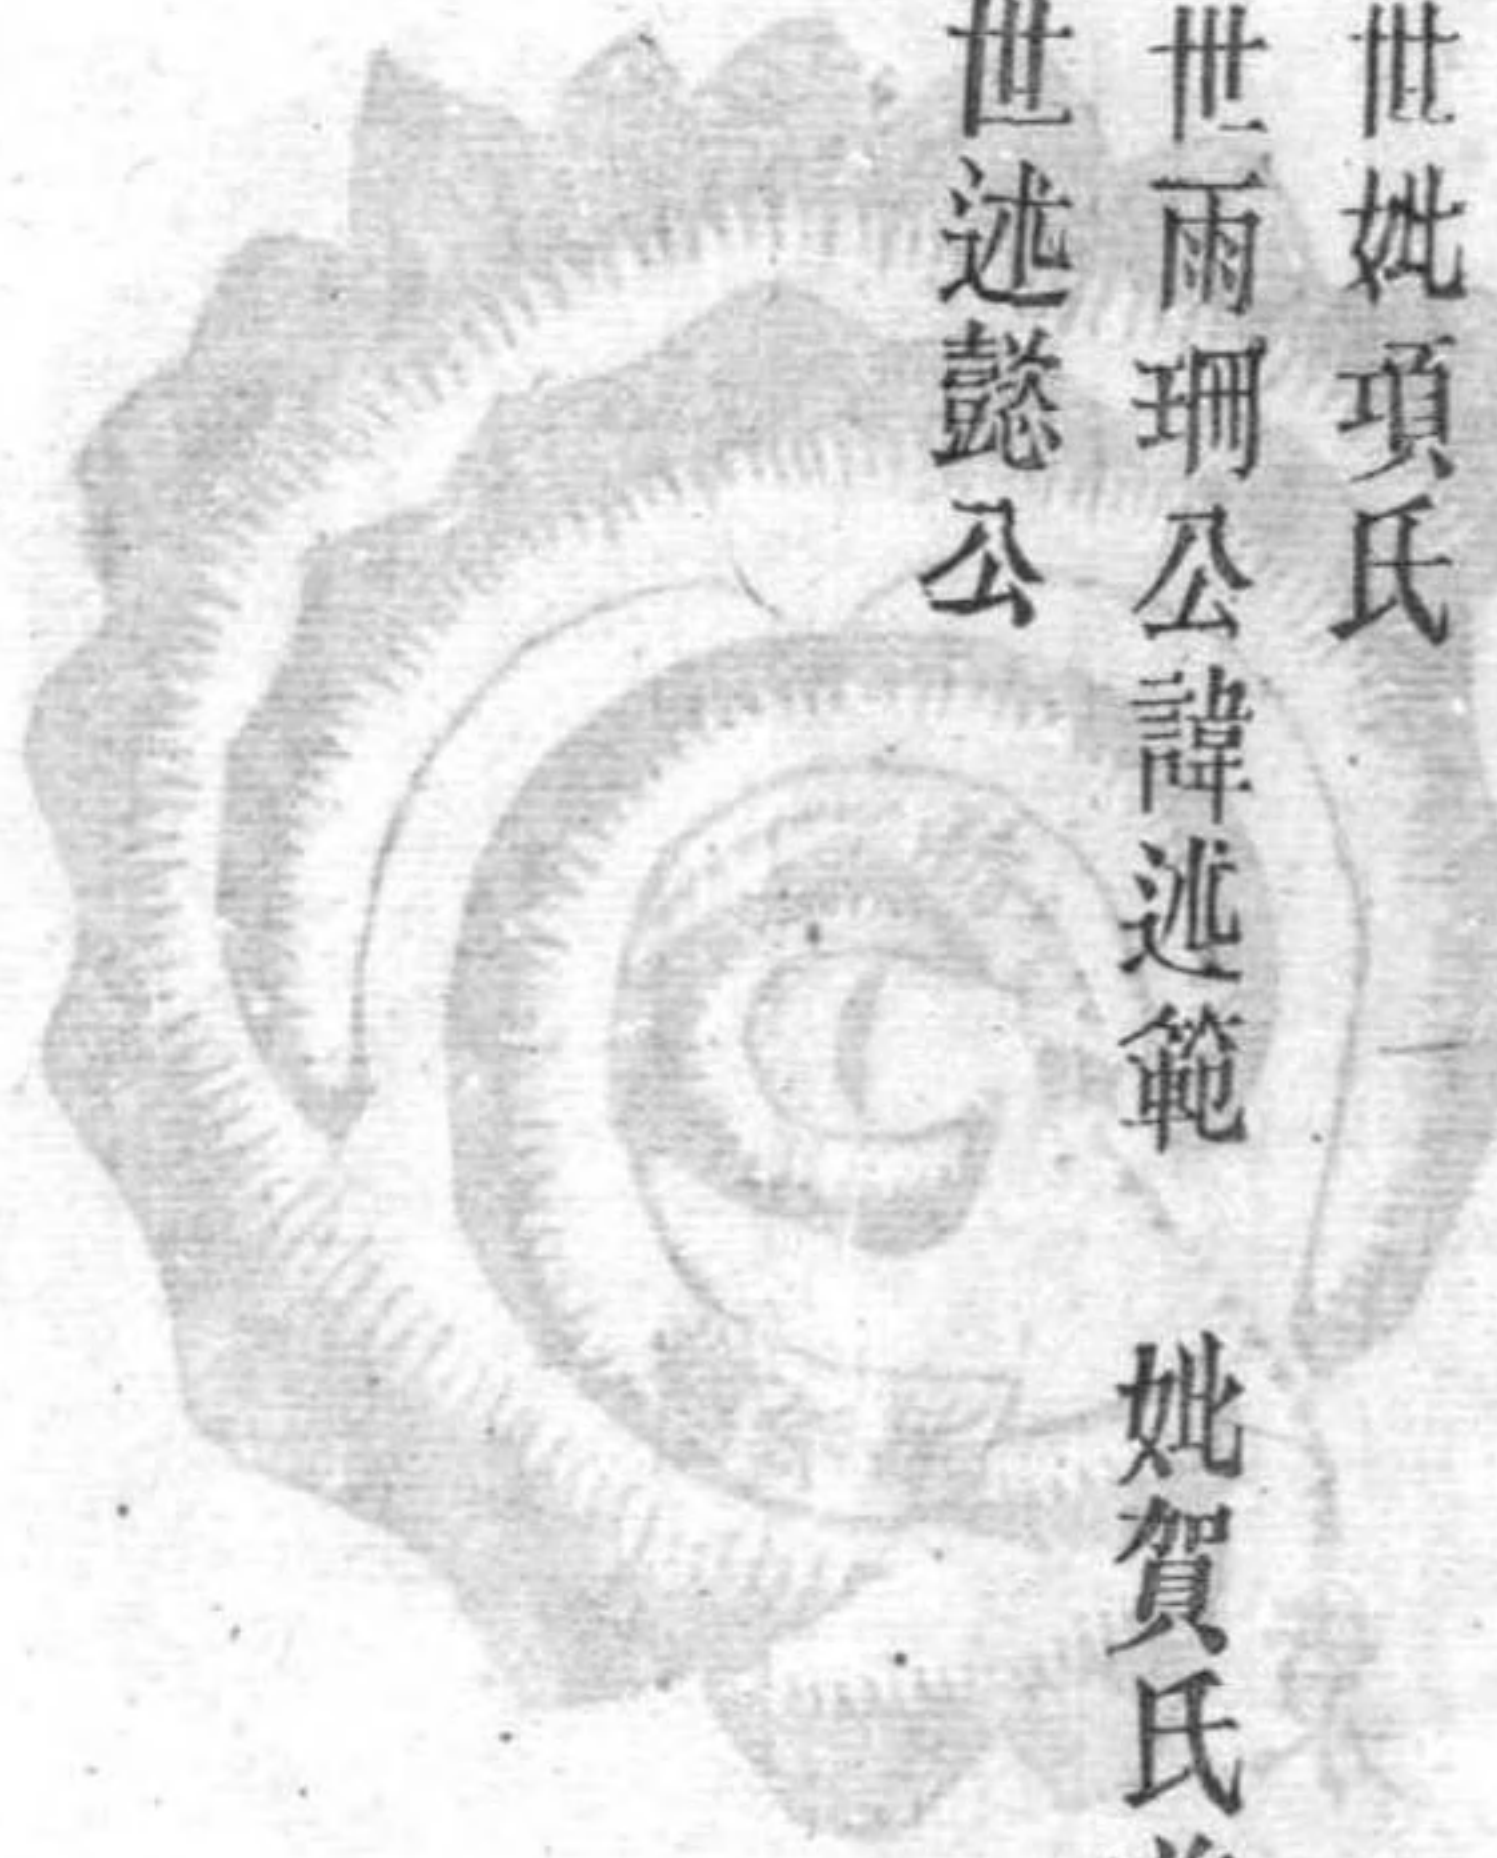 世妣項氏
世雨珊公諱述範　妣賀氏
世述懿公